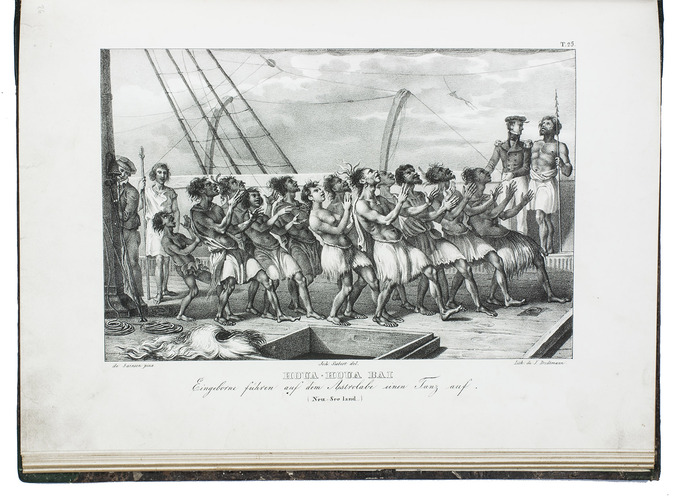 T.25
de Sainson pinx
Joh. Suter del.
Lith. de J. Brodtmann.
HOUA-HOUA BAI
Eingeborne führen auf dem Astrolabe einen Tanz auf.
(Neu-See land.)